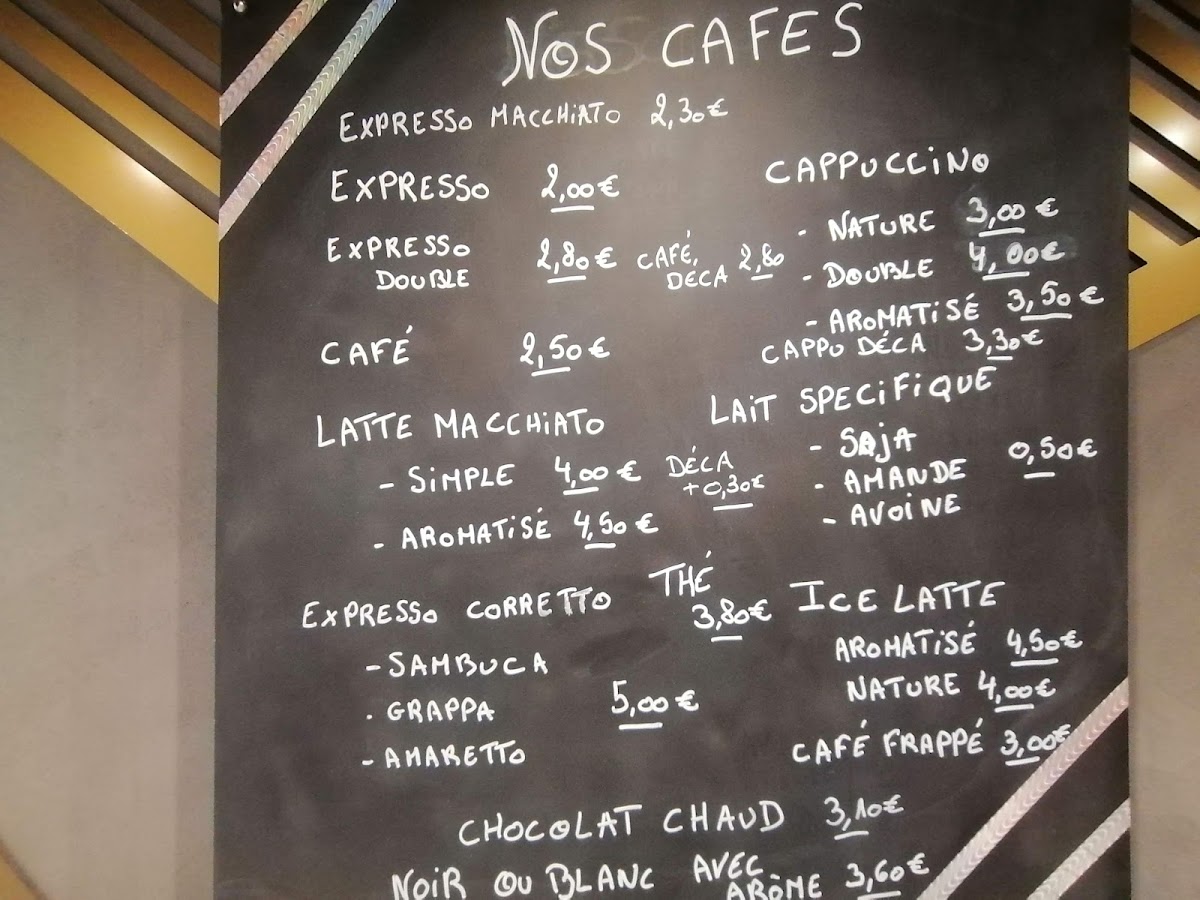 NOS CAFES
EXPRESSO MACCHIATO 2,30€
EXPRESSO 2,00€
EXPRESSO DOUBLE 2,80€
CAFÉ, DÉCA 2,80
CAFÉ 2,50€
LATTE MACCHIATO
- SIMPLE 4,00€ DÉCA +0,30€
- AROMATISÉ 4,50€
CAPPUCCINO
- NATURE 3,00€
- DOUBLE 4,00€
- AROMATISÉ 3,50€
CAPPU DÉCA 3,30€
LAIT SPECIFIQUE
- SOJA
- AMANDE 0,50€
- AVOINE
EXPRESSO CORRETTO
- SAMBUCA
- GRAPPA 5,00€
- AMARETTO
THÉ
3,80€
ICE LATTE
AROMATISÉ 4,50€
NATURE 4,00€
CAFÉ FRAPPÉ 3,00€
CHOCOLAT CHAUD 3,10€
NOIR OU BLANC AVEC ARÔME 3,60€